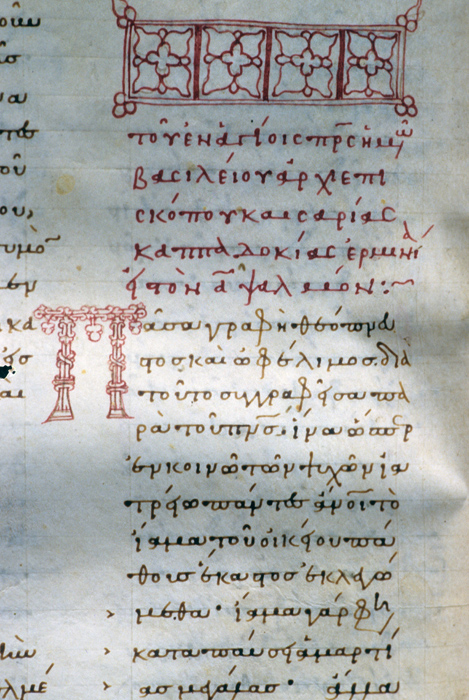 τοῦ ἐν ἁγίοις πρς ἡμῶ
βασιλείου ἀρχιεπι
σκόπου καισαρίας
καππαδοκίας ἑρμηνεί
εἰς τὸν α ψαλμόν:~
Πᾶσα γραφὴ θεόπνευ
στος καὶ ὠφέλιμος. διὰ
τοῦτο συγγραφεῖσα πα
ρὰ τοῦ πνς, ἵνα ὥσπερ
ἐν κοινῷ τῶν ψυχῶν ἰα
τρείῳ πάντες ἄνοι τὸ
ἴαμα τοῦ οἰκείου πά
θους ἕκαστος ἐκλεγώ
μεθα· ἴαμα γάρ φη
καταπαύσει ἁμαρτί
ας μεγάλας· ἄλλα